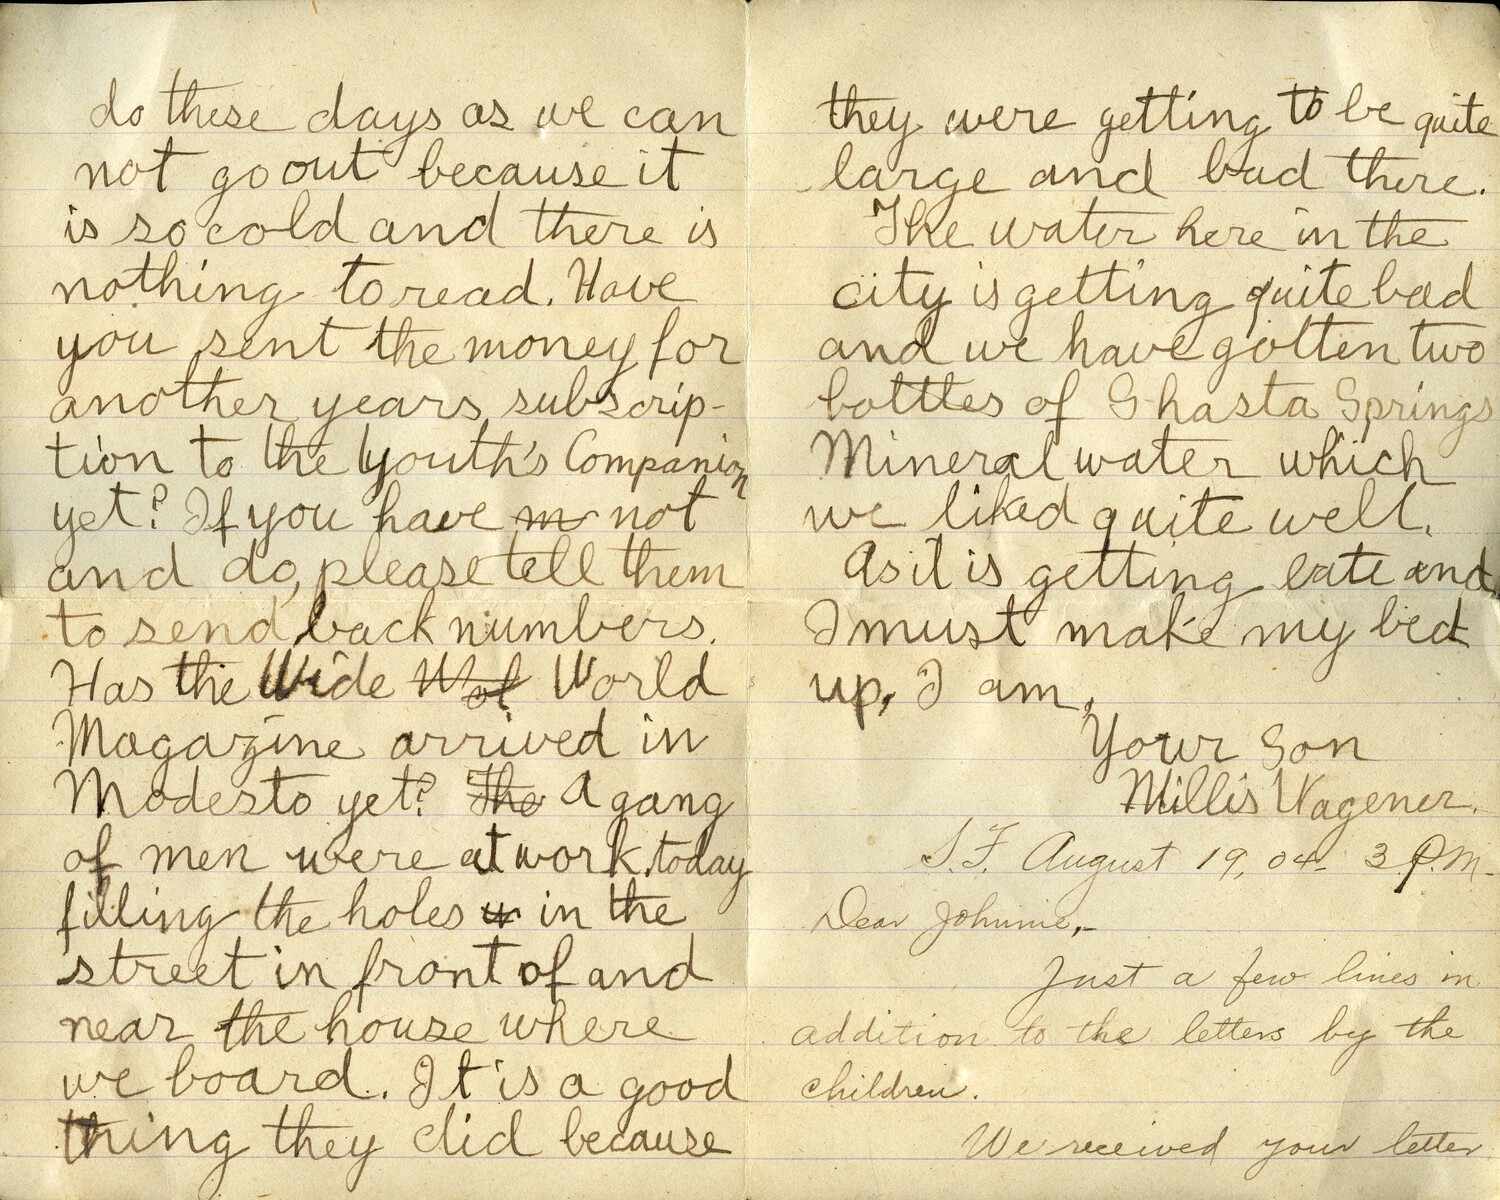 do these days as we can
not go out because it
is so cold and there is
nothing to read. Have
you sent the money for
another years, subscrip-
tion to the Youth's Companion
yet? If you have m not
and do, please tell them
to send back numbers.
Has the Wide Wol World
Magazine arrived in
Modesto yet? The A gang
of men were at work today
filling the holes w in the
street in front of and
near the house where
we board. It is a good
thing they did because
they were getting to be quite
large and bad there.
The water here in the
city is getting quite bad
and we have gotten two
bottles of Shasta Springs
Mineral water which
we liked quite well.
As it is getting late and
I must make my bed
up, I am,
Your Son
Millis Wagener.
S.F. August 19, 04- 3 P.M.
Dear Johnnie,-
Just a few lines in
addition to the letters by the
children.
We received your letter